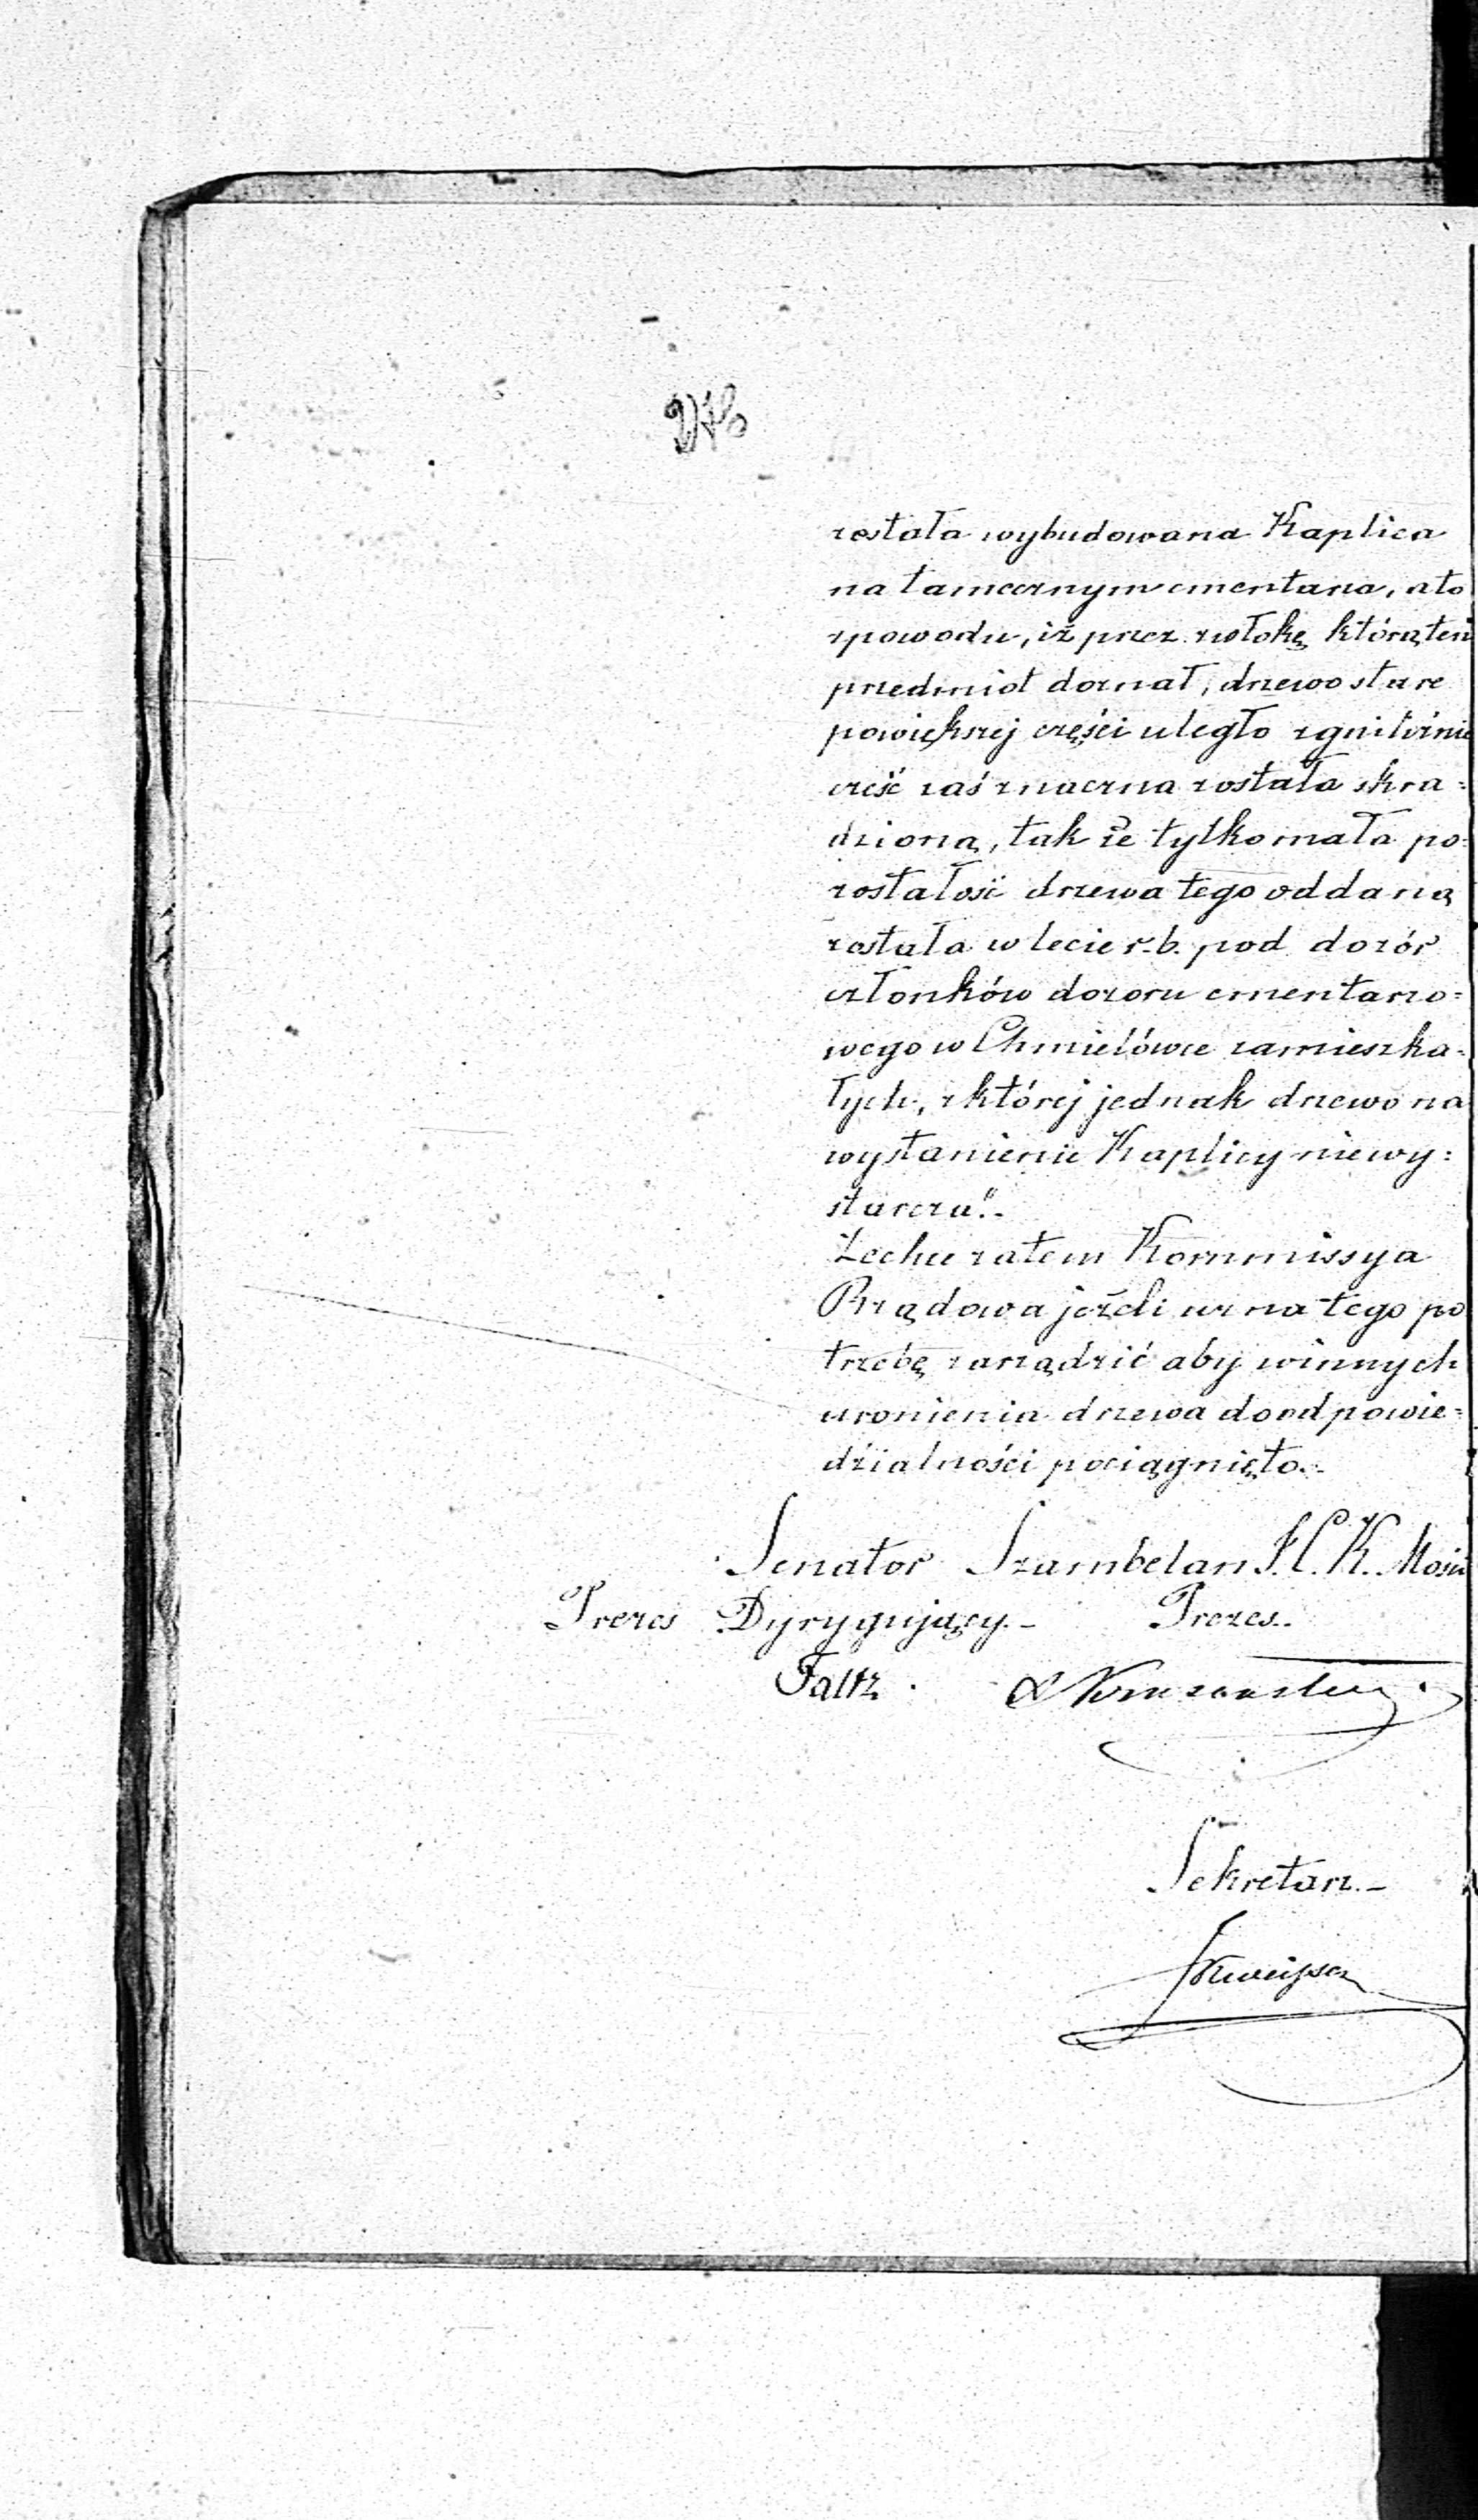 została wybudowana Kaplica
na tamecznym cmentarzu, a to
z powodu, iż przez zwłokę którą ten
przedmiot doznał, drzewo stare
powiększej części uległo zgniliźnie
część zaś znaczna została skra=
dzioną, tak że tylko mała po=
zostałość drzewa tego oddaną
została w lecie r.b. pod dozór
członków dozoru cmentarzo=
wego w Chmielówce zamieszka=
łych, z której jednak drzewo na
wystawienie Kaplicy niewy=
starcza".-
Zechce zatem Kommissya
Rządowa jeżeli uzna tego po
trzebę zarządzić aby winnych
uronienia drzewa do odpowie=
dzialności pociągnięto.-
Senator Szambelan J.C.K. Mości
Prezes Dyrygujący.- Prezes.-
Faltz.
Sekretarz.-